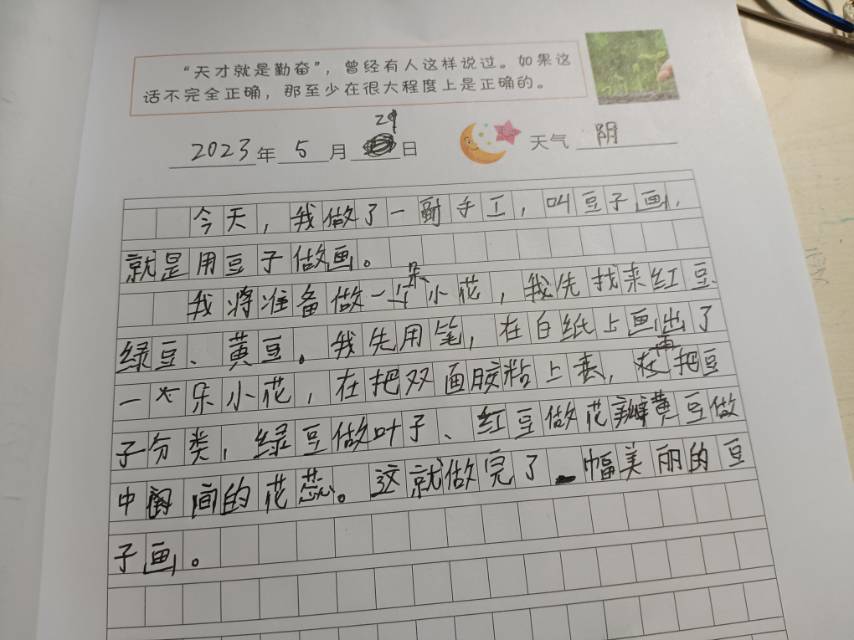 “天才就是勤奋”，曾经有人这样说过。如果这
话不完全正确，那至少在很大程度上是正确的。
2023年 5月 29日 天气 阴
今天，我做了一副手工，叫豆子画，
就是用豆子做画。
我将准备做一朵小花，我先找来红豆
绿豆、黄豆。我先用笔，在白纸上画出了
一大乐小花，在把双面胶粘上去，再把豆
子分类，绿豆做叶子、红豆做花瓣黄豆做
中间的花蕊。这就做完了一幅美丽的豆
子画。